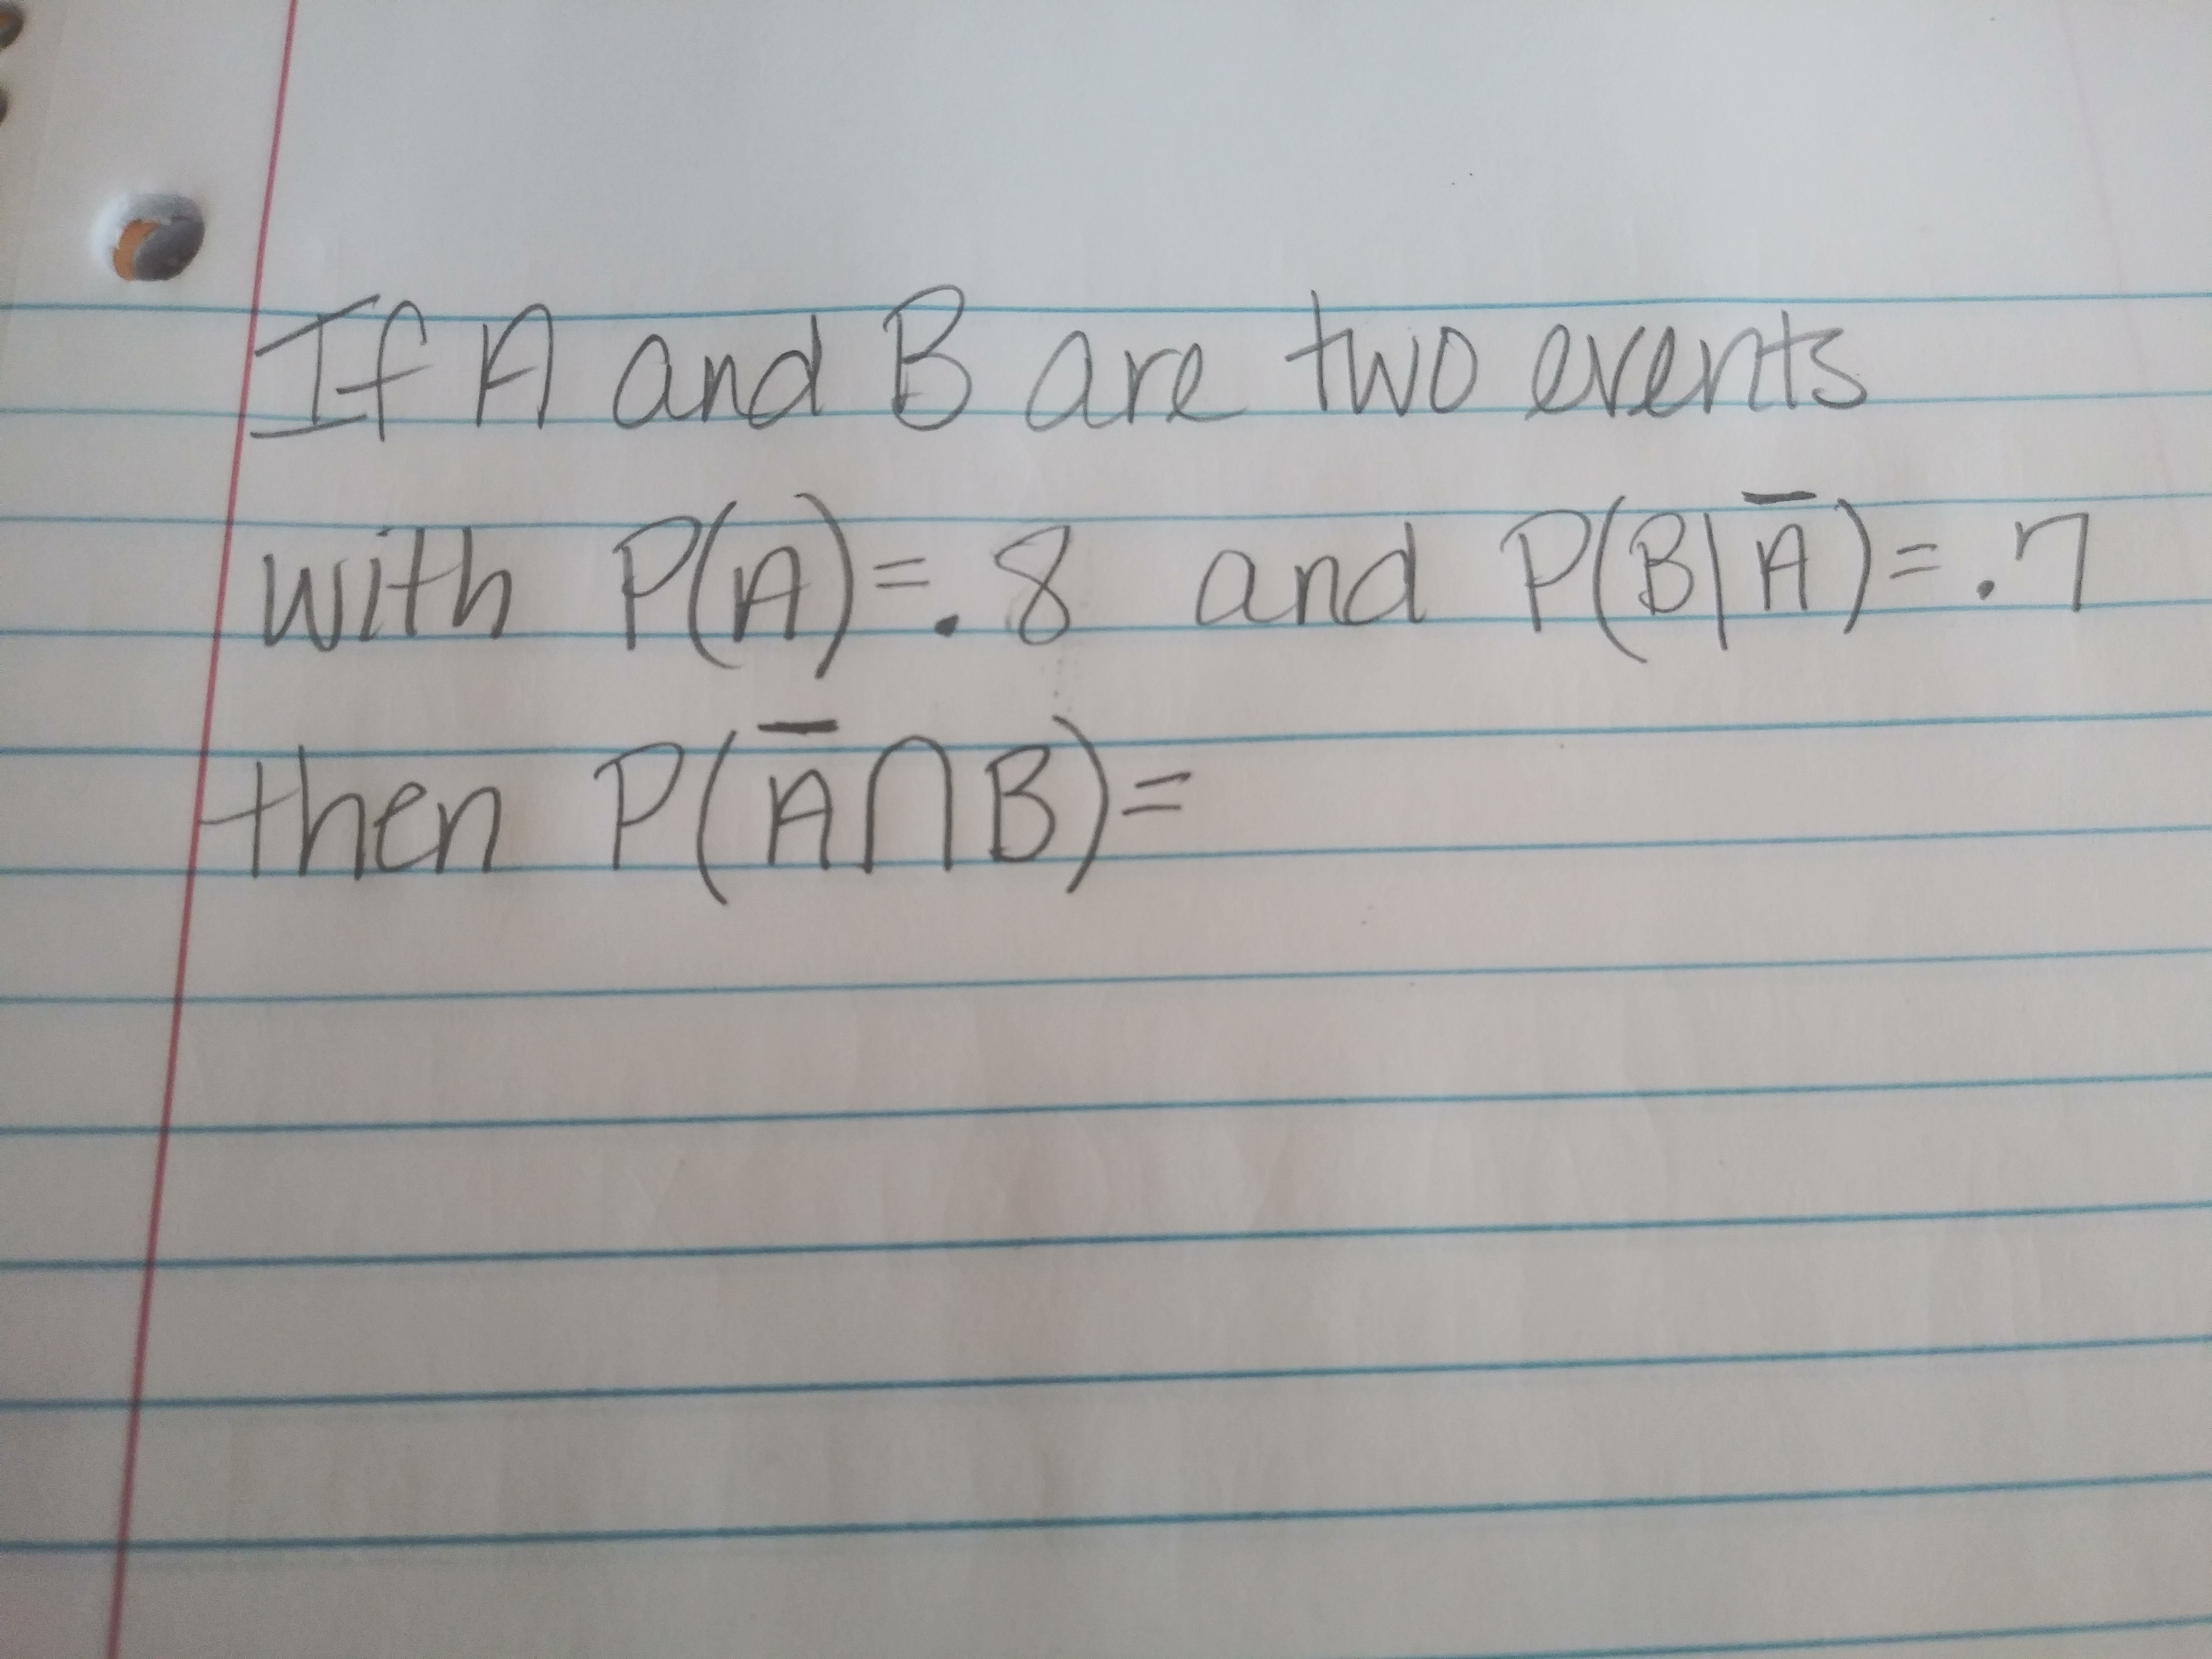 If A and B are two events
with P(A)=.8 and P(B|A̅)=.7
then P(A̅∩B)=